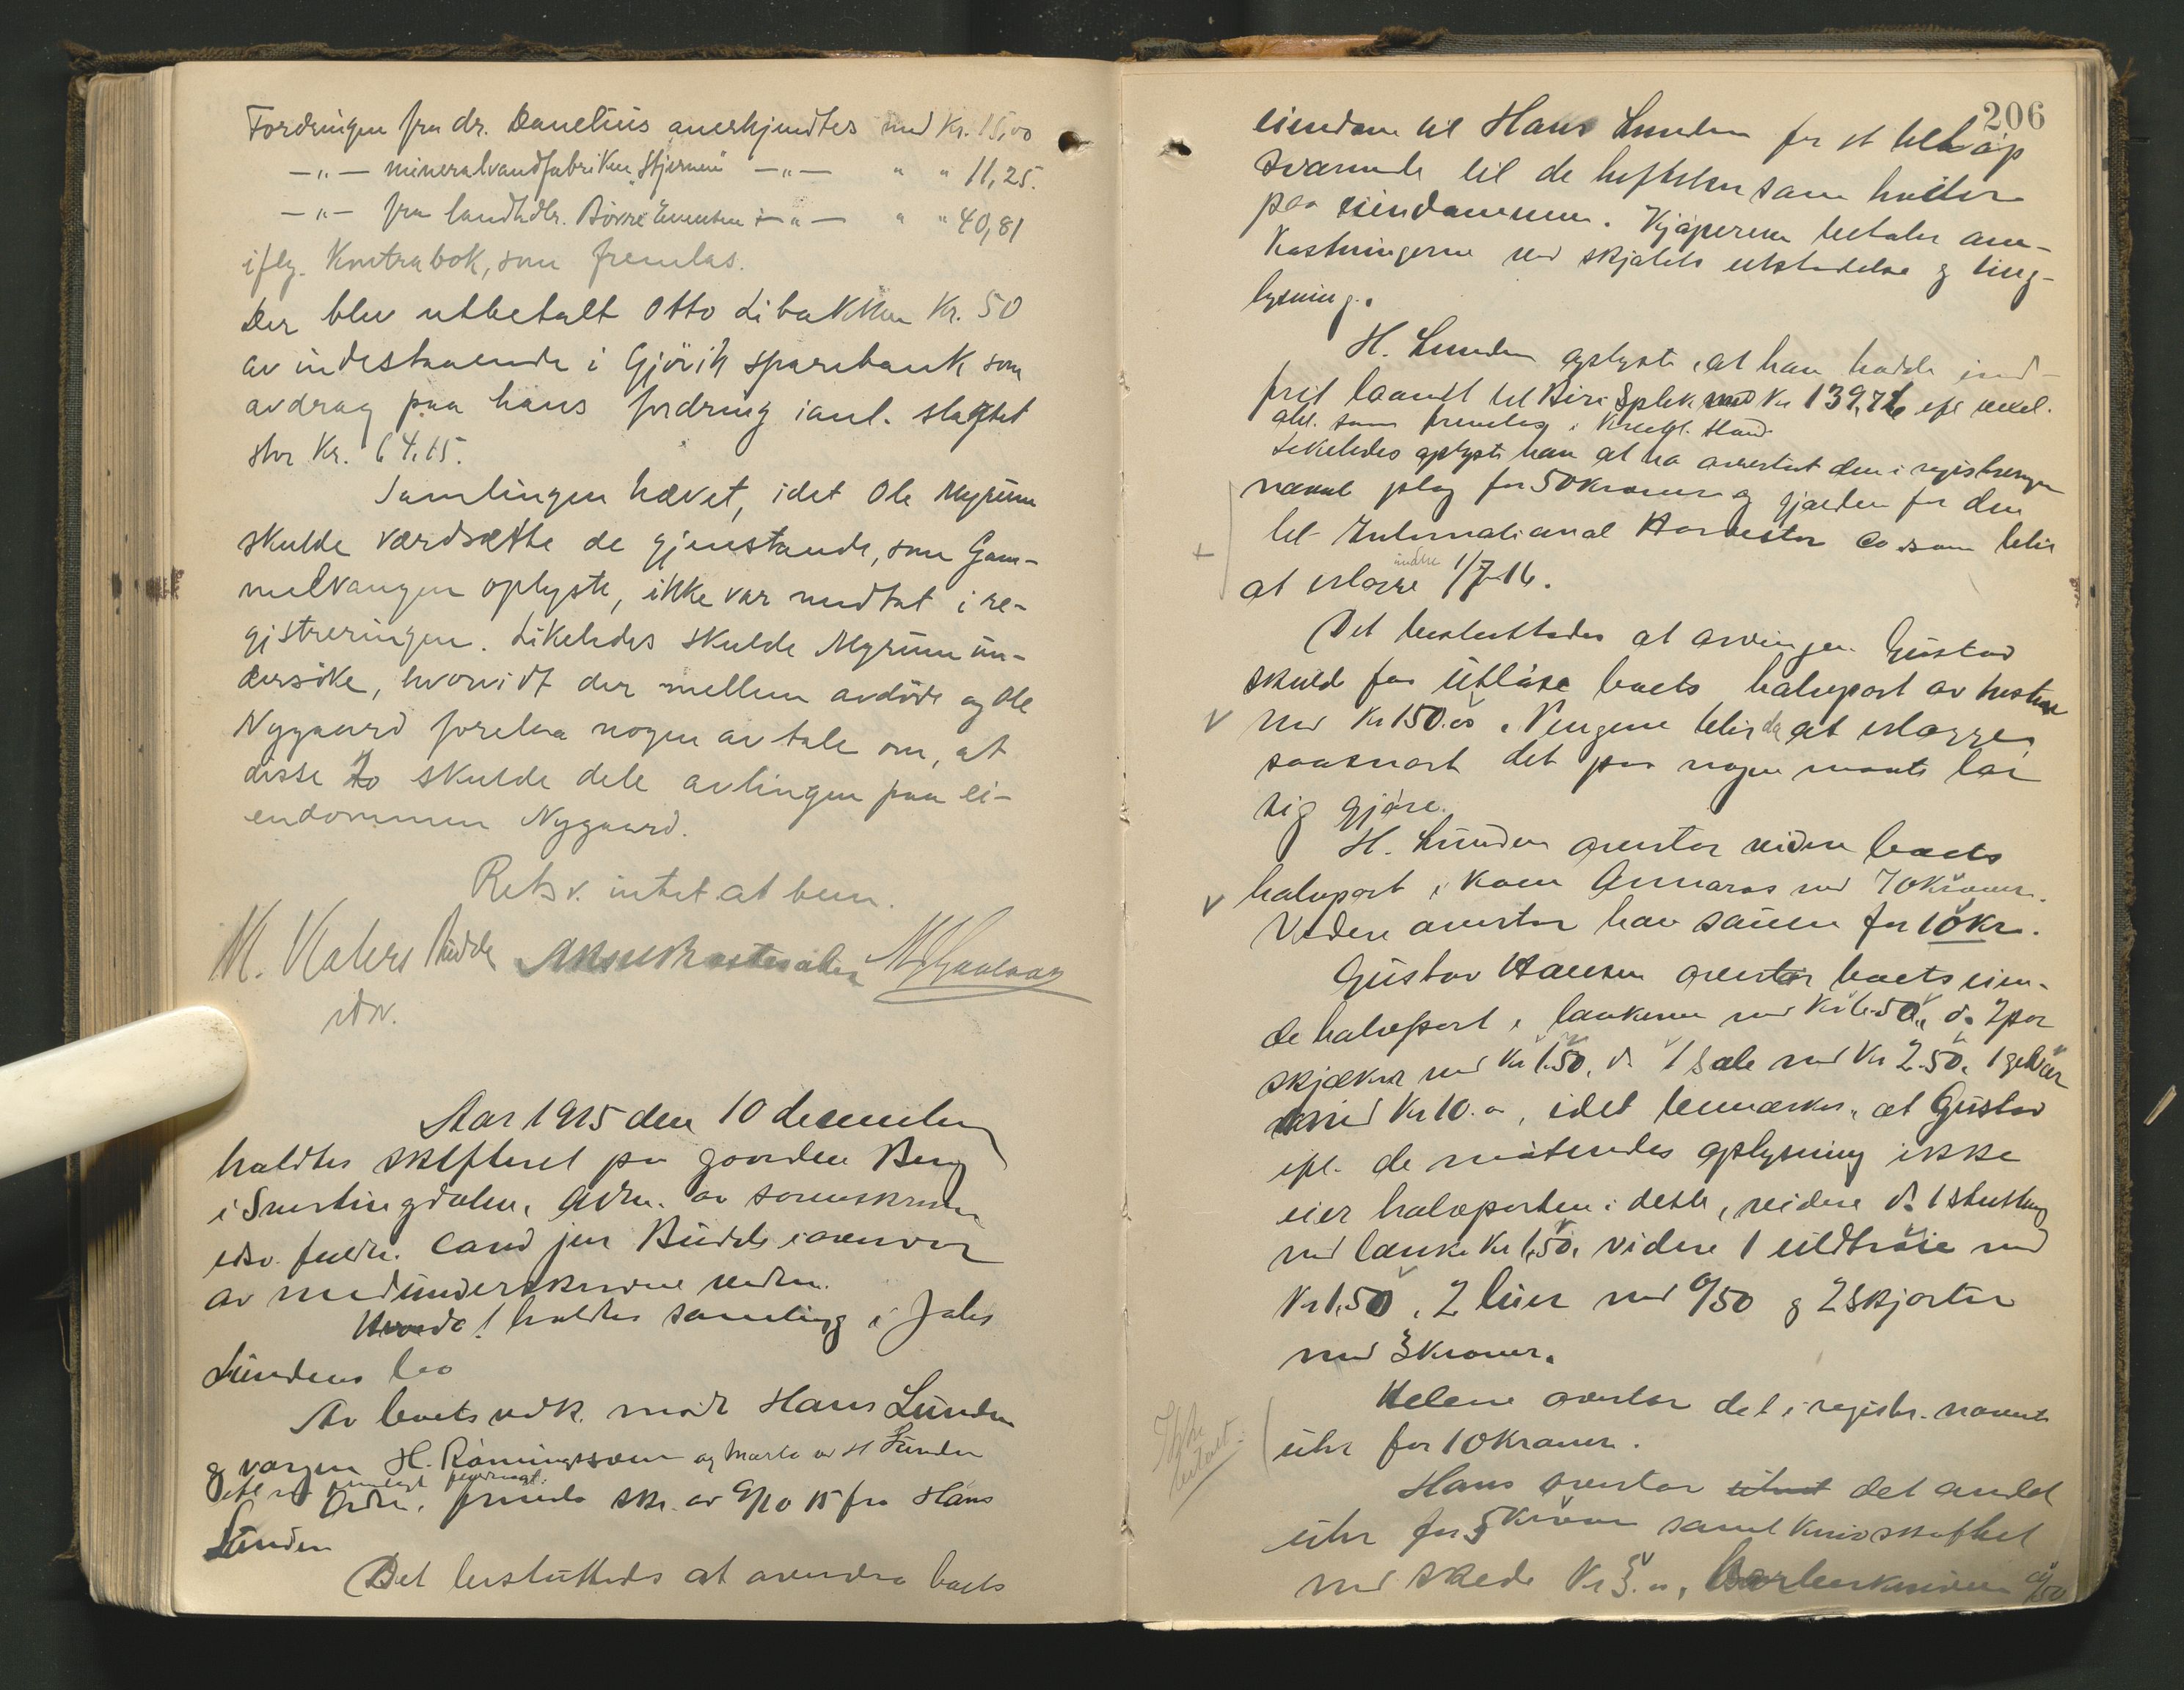 Fordringen fra dr. Danelius anerkjendtes med Kr. 15,00
—„— mineralvandfabriken „Stjernen" —„— „ „ 11,25.
—„— fra landhdlr. Børre Evensen —„— „ „ 40,81
iflg. Kontrabok, som fremlas.
Der blev utbetalt Otto Libakken Kr. 50
av indestaaende i Gjövik sparebank som
avdrag paa hans fordring ianl. slagtet
stor Kr. 64.15.
Samlingen hævet, idet Ole Myrum
skulde værdsætte de gjenstande, som Gam-
melvangen oplyste, ikke var medtat i re-
gistreringen. Likeledes skulde Myrum un-
dersöke, hvorvidt der mellem avdöde og Ole
Nygaard forelaa nogen avtale om, at
disse to skulde dele avlingen paa ei-
endommen Nygaard.
Retsv. intet at bem.
M. Kolers Budde
edsv.
Aar 1915 den 10 december
holdtes skifteret paa gaarden Berg
i Snertingdalen, Adm. av sorenskriver
edsv. fuldm. cand jur Budde i overvær
av medunderskrevne vidner.
Hvorda! holdtes samling i Johs
Lundens bo
Av boets vedk. mödte Hans Lunden
og vergen H. Rönningsveen og Marte og H Lunden
efter fremlagt fuldmagt.
Ordm. fremla skr. av 9/10 15 fra Hans
Lunden
Det besluttedes at overdra boets
206
eiendom til Hans Lunden for et belöp
svarende til de heftelser som hviler
paa eiendommen. Kjöperen betaler om-
kostningerne ved skjötets utstedelse og ting-
lysning.
H. Lunden oplyste, at han hadde ind-
friet laanet til Biri Spbk med Kr 139,76 efl vexel.
obl. som fremlas i kvitt. stand
Likeledes oplyste han at ha overtat den i registreringen
nævnte plog for 50 kroner og gjælden for den
til International Harvester Co som blir
at utlægge inden 1/7-16.
Det besluttedes at arvingen Gustav
skulde faa utløse boets halvpart av hesten
med Kr 150.00. Pengene blir da at utlægge
saasnart det paa nogen maate lar
sig gjöre.
H. Lunden overtar videre boets
halvpart i koen Annaros med 70 kroner.
Videre overtar han sauen for 10 kr.
Gustav Hansen overtar boets eien-
de halvpart i lænkene med Kr 1.50, do 2 par
skjæker med Kr 1.50, do 1 sæle med Kr 2.50, 1 gevær
med Kr 10.00, idet bemærkes, at Gustav
efl. de mötendes oplysning ikke
eier halvparten i dette, videre do 1 stutting
med lænke Kr 1,50, videre 1 ulltröie med
Kr 1.50, 2 luer med 0/50 og 2 skjorter
med 3 kroner.
Helene overtar det i registr. nævnte
uhr for 10 kroner.
Ikke
betalt.
Hans overtar uhret det andet
uhr for 5 kroner samt knivskaftet
med skede Kr 3.00, Barberkniven 0/50